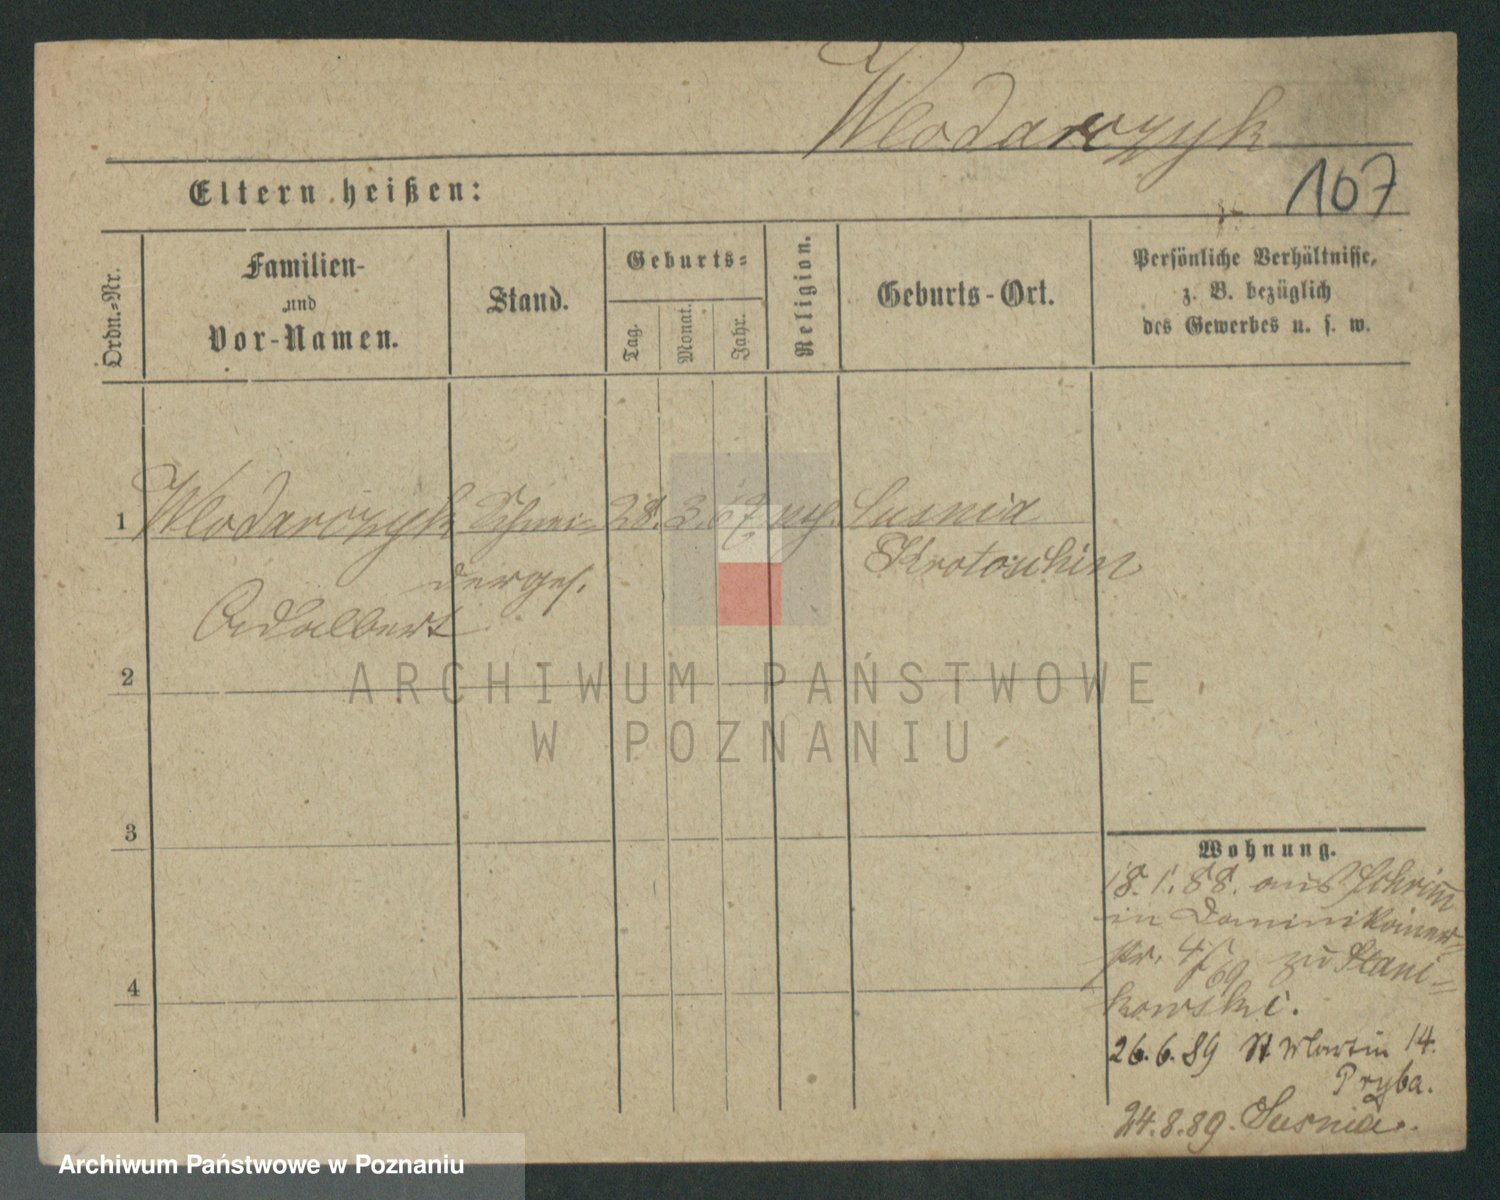 Wlodarczyk
167
Eltern heißen:
Ordn.-Nr.
Familien-
und
Vor-Namen.
Stand.
Geburts-
Tag.
Monat.
Jahr.
Religion.
Geburts-Ort.
Persönliche Verhältnisse,
z. B. bezüglich
des Gewerbes u. s. w.
1 Wlodarczyk Schnei- 28. 3. 67 Susnia
Krotoschin
derges.
Adalbert
2
ARCHIWUM PAŃSTWOWE
W POZNANIU
3
4
Wohnung.
18. 1. 88. aus Schrimm
in Dominikaner-
str. zu Stani-
kowski.
26. 6. 89 St Martin 14.
Pryba.
24. 8. 89. Susnia.
Archiwum Państwowe w Poznaniu